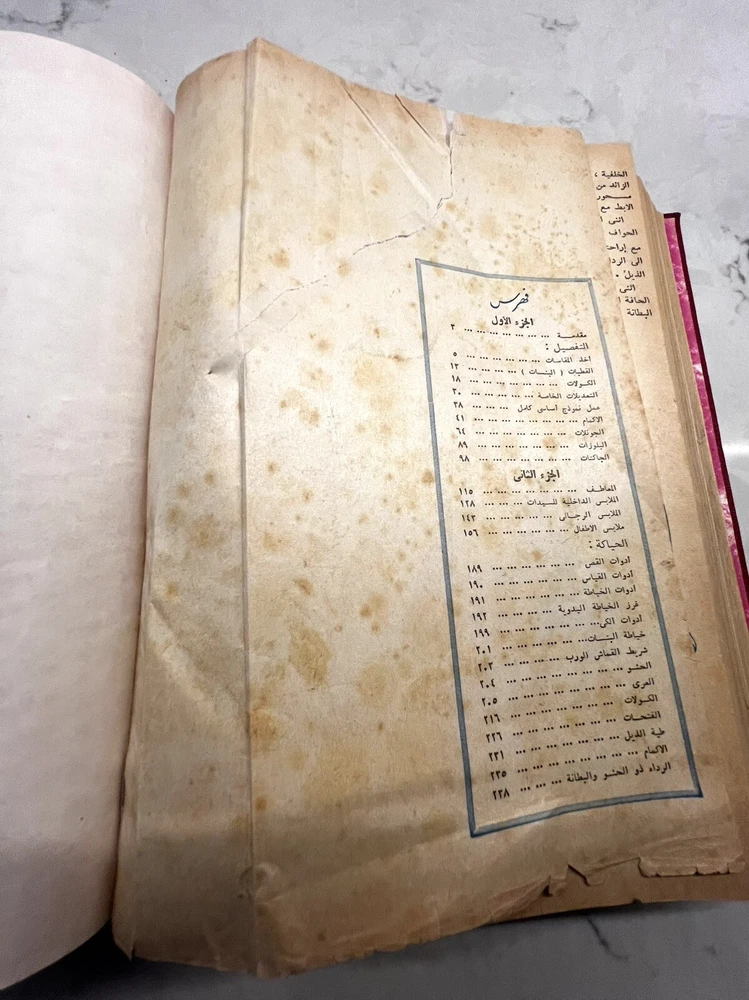 الخلفية ،
الزائد من
محور
الابط مع
الثنى ا
الحواف
مع إراحة
الى الردا
الذيل .
الثنى
الحافة ا
البطانة
فهرس
الجزء الأول
مقدمة ... ... ... ... ... ... ... ٣
التفصيل :
أخذ المقاسات ... ... ... ... ... ... ٥
القطبات ( البنسات ) ... ... ... ... ١٢
الكولات ... ... ... ... ... ... ... ١٨
التعديلات الخاصة ... ... ... ... ... ٢٠
عمل نموذج أساسى كامل ... ... ... ٣٨
الاكمام ... ... ... ... ... ... ... ... ٤١
الجونلات ... ... ... ... ... ... ... ٦٤
البلوزات ... ... ... ... ... ... ... ٨٩
الجاكتات ... ... ... ... ... ... ... ٩٨
الجزء الثانى
المعاطف ... ... ... ... ... ... ... ١١٥
الملابس الداخلية للسيدات ... ... ... ١٢٨
الملابس الرجالى ... ... ... ... ... ١٤٣
ملابس الاطفال ... ... ... ... ... ... ١٥٦
الحياكة :
أدوات القص ... ... ... ... ... ... ١٨٩
أدوات القياس ... ... ... ... ... ... ١٩٠
أدوات الخياطة ... ... ... ... ... ... ١٩١
غرز الخياطة اليدوية ... ... ... ... ١٩٢
أدوات الكى... ... ... ... ... ... ... ١٩٩
خياطة البنسات... ... ... ... ... ... ٢٠١
شريط القماش الورب ... ... ... ... ٢٠٣
الحشو ... ... ... ... ... ... ... ... ٢٠٤
العرى ... ... ... ... ... ... ... ... ٢٠٥
الكولات ... ... ... ... ... ... ... ٢١٦
الفتحات ... ... ... ... ... ... ... ٢٢٦
طية الذيل ... ... ... ... ... ... ... ٢٣١
الاكمام ... ... ... ... ... ... ... ... ٢٣٥
الرداء ذو الحشو والبطانة ... ... ... ٢٣٨